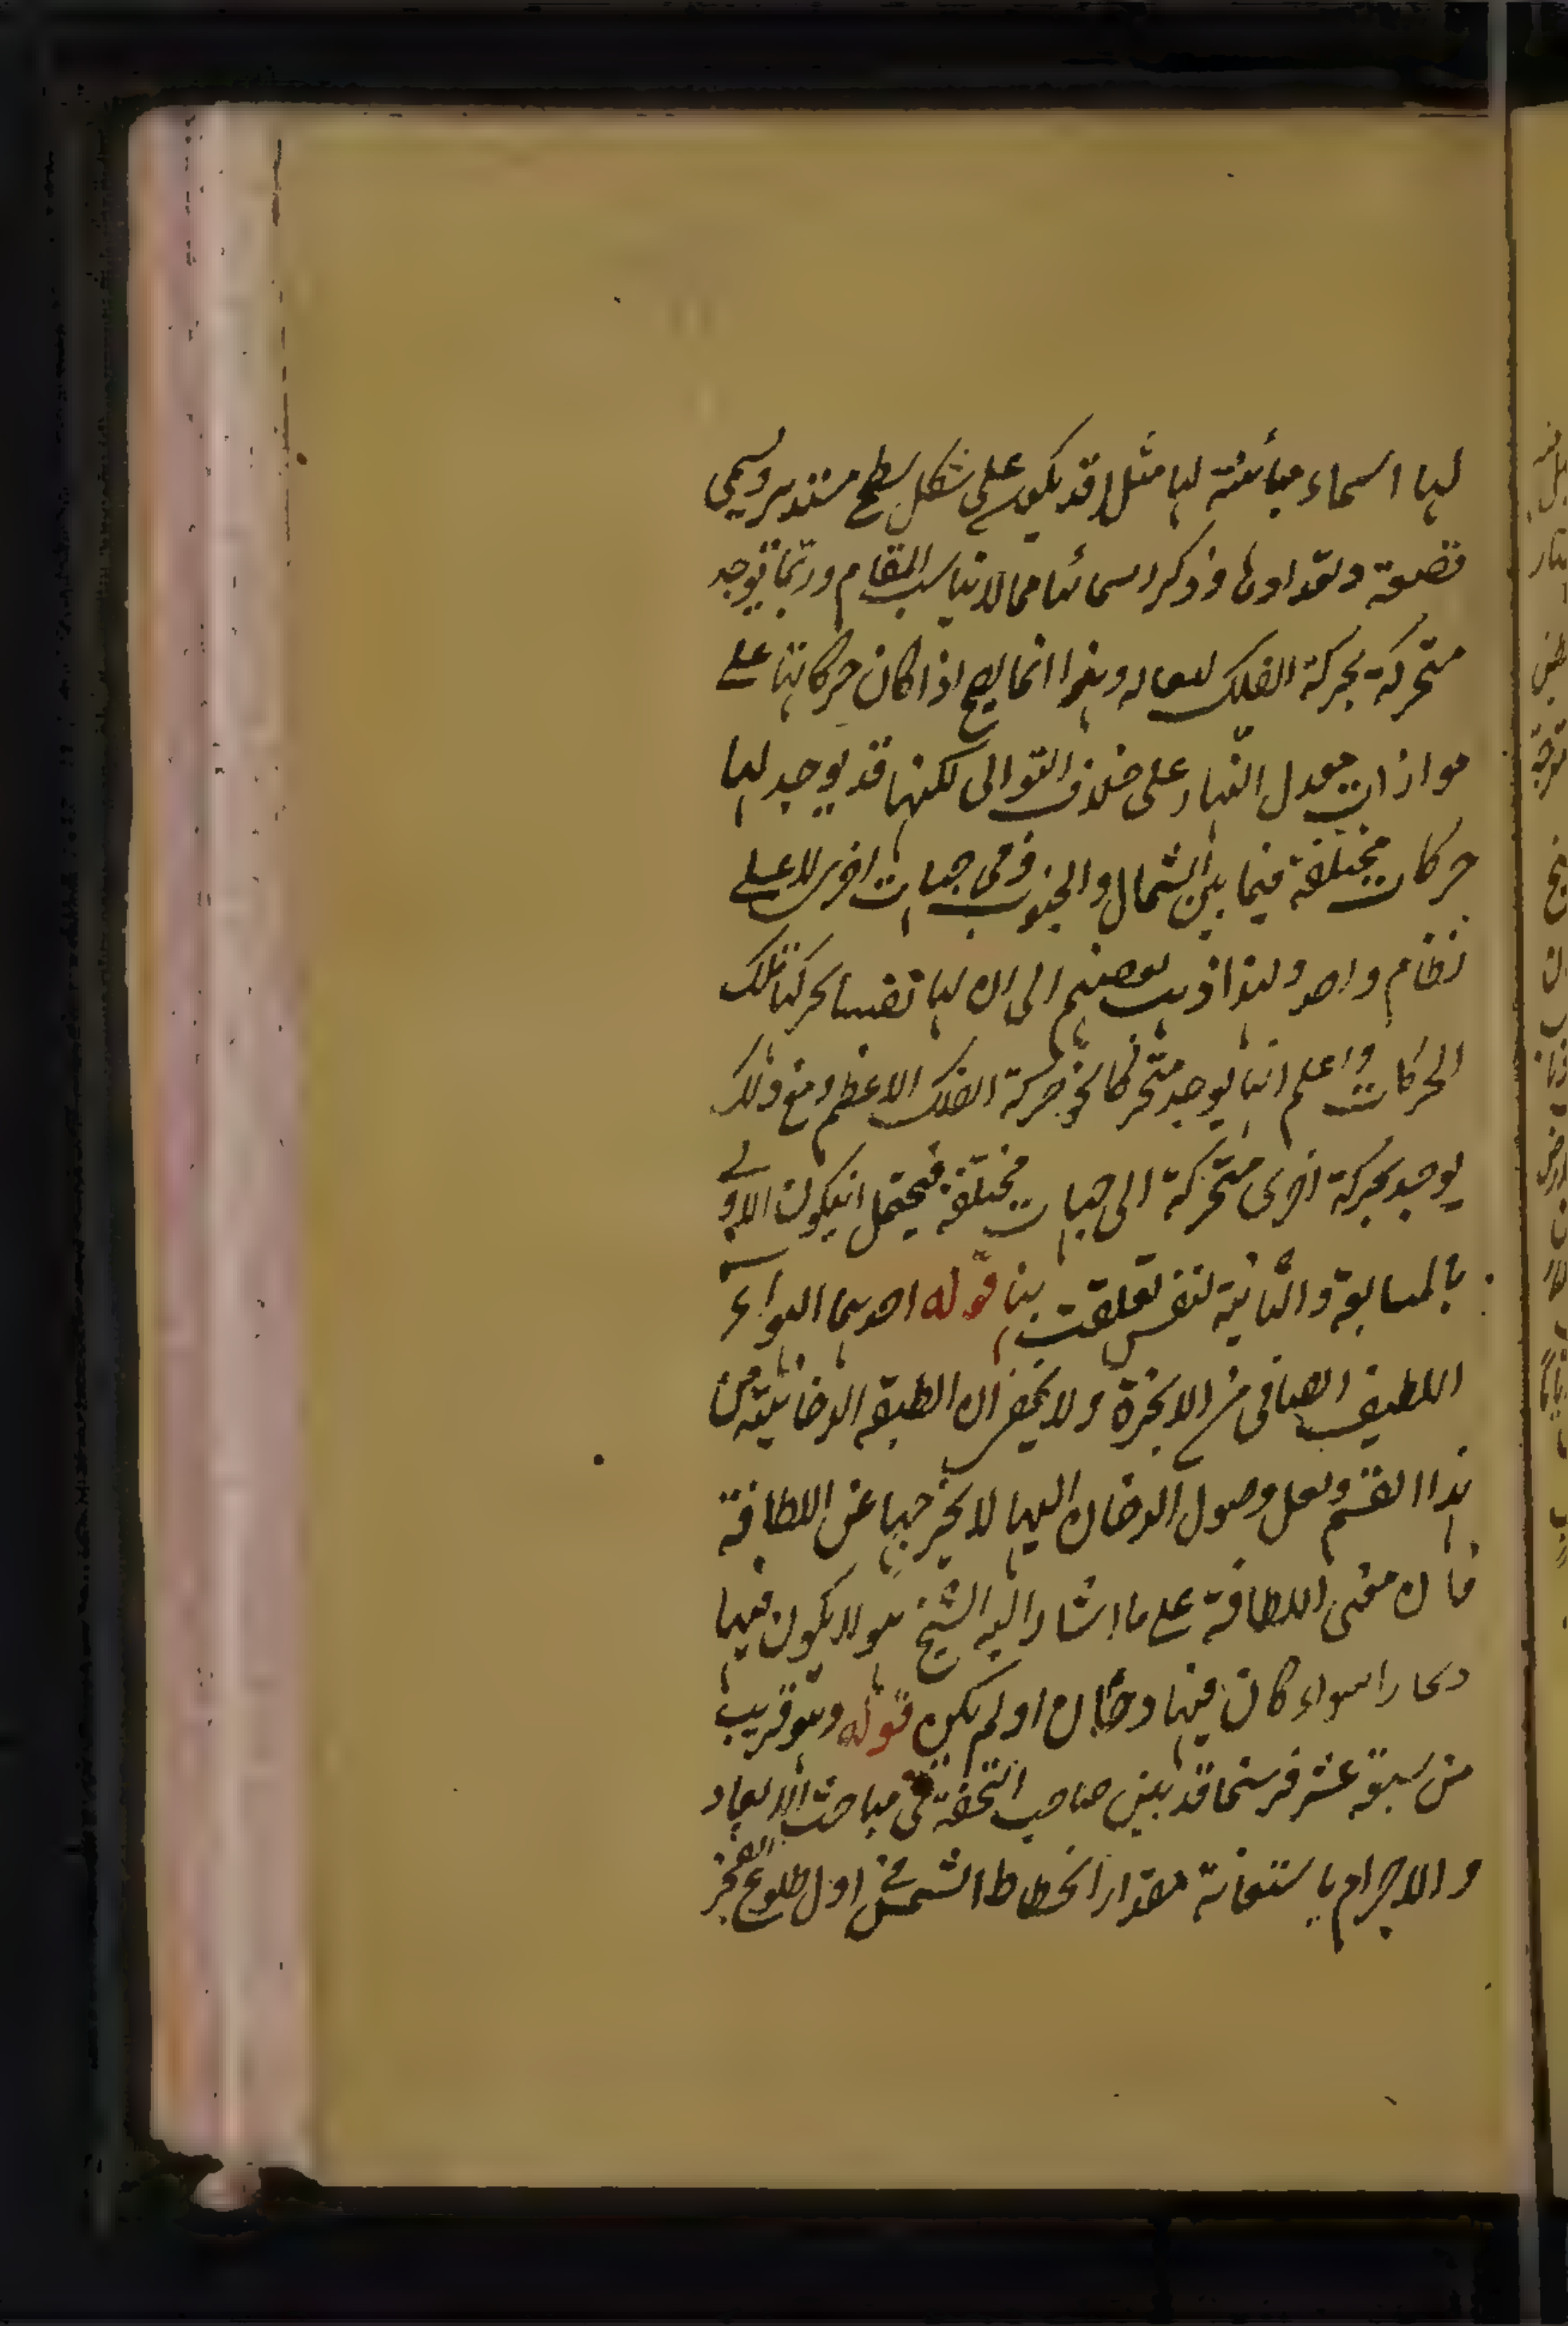 لها اسماء مبائنة لها مثلا قد يكون على شكل سطح مستدير وسمى
قصعة وتعدادها وذكر اسمائها مما لا يناسب المقام وربما توجد
متحركة بحركة الفلك وهذا انما يصح اذا كان حركاتها على
موازات معدل النهار على خلاف التوالى لكنها قد يوجد لها
حركات مختلفة فيما بين الشمال والجنوب وفى جهات اخرى لا على
نظام واحد ولهذا ذهب بعضهم الى ان لها نفسا يحركها تلك
الحركات واعلم انها يوجد متحركا نحو حركة الفلك الاعظم ومع ذلك
يوجد بحركة اخرى متحركة الى جهات مختلفة فيحتمل ان يكون الاولى
بالمتابعة والثانية لنفس تعلقت بها قوله احدهما الهواء
اللطيف الصافى من الابخرة ولا يخفى ان الطبقة الدخانية من
هذا القسم ولعل وصول الدخان اليها لا يخرجها عن اللطافة
فان معنى اللطافة على ما اشار اليه الشيخ هو لا يكون فيها
بخار سواء كان فيها دخان او لم يكن قوله وهو قريب
من سبعة عشر فرسخا قد بين صاحب التحفة فى مباحث الابعاد
والاجرام باستعانة مقدار انحطاط الشمس فى اول طلوع الفجر